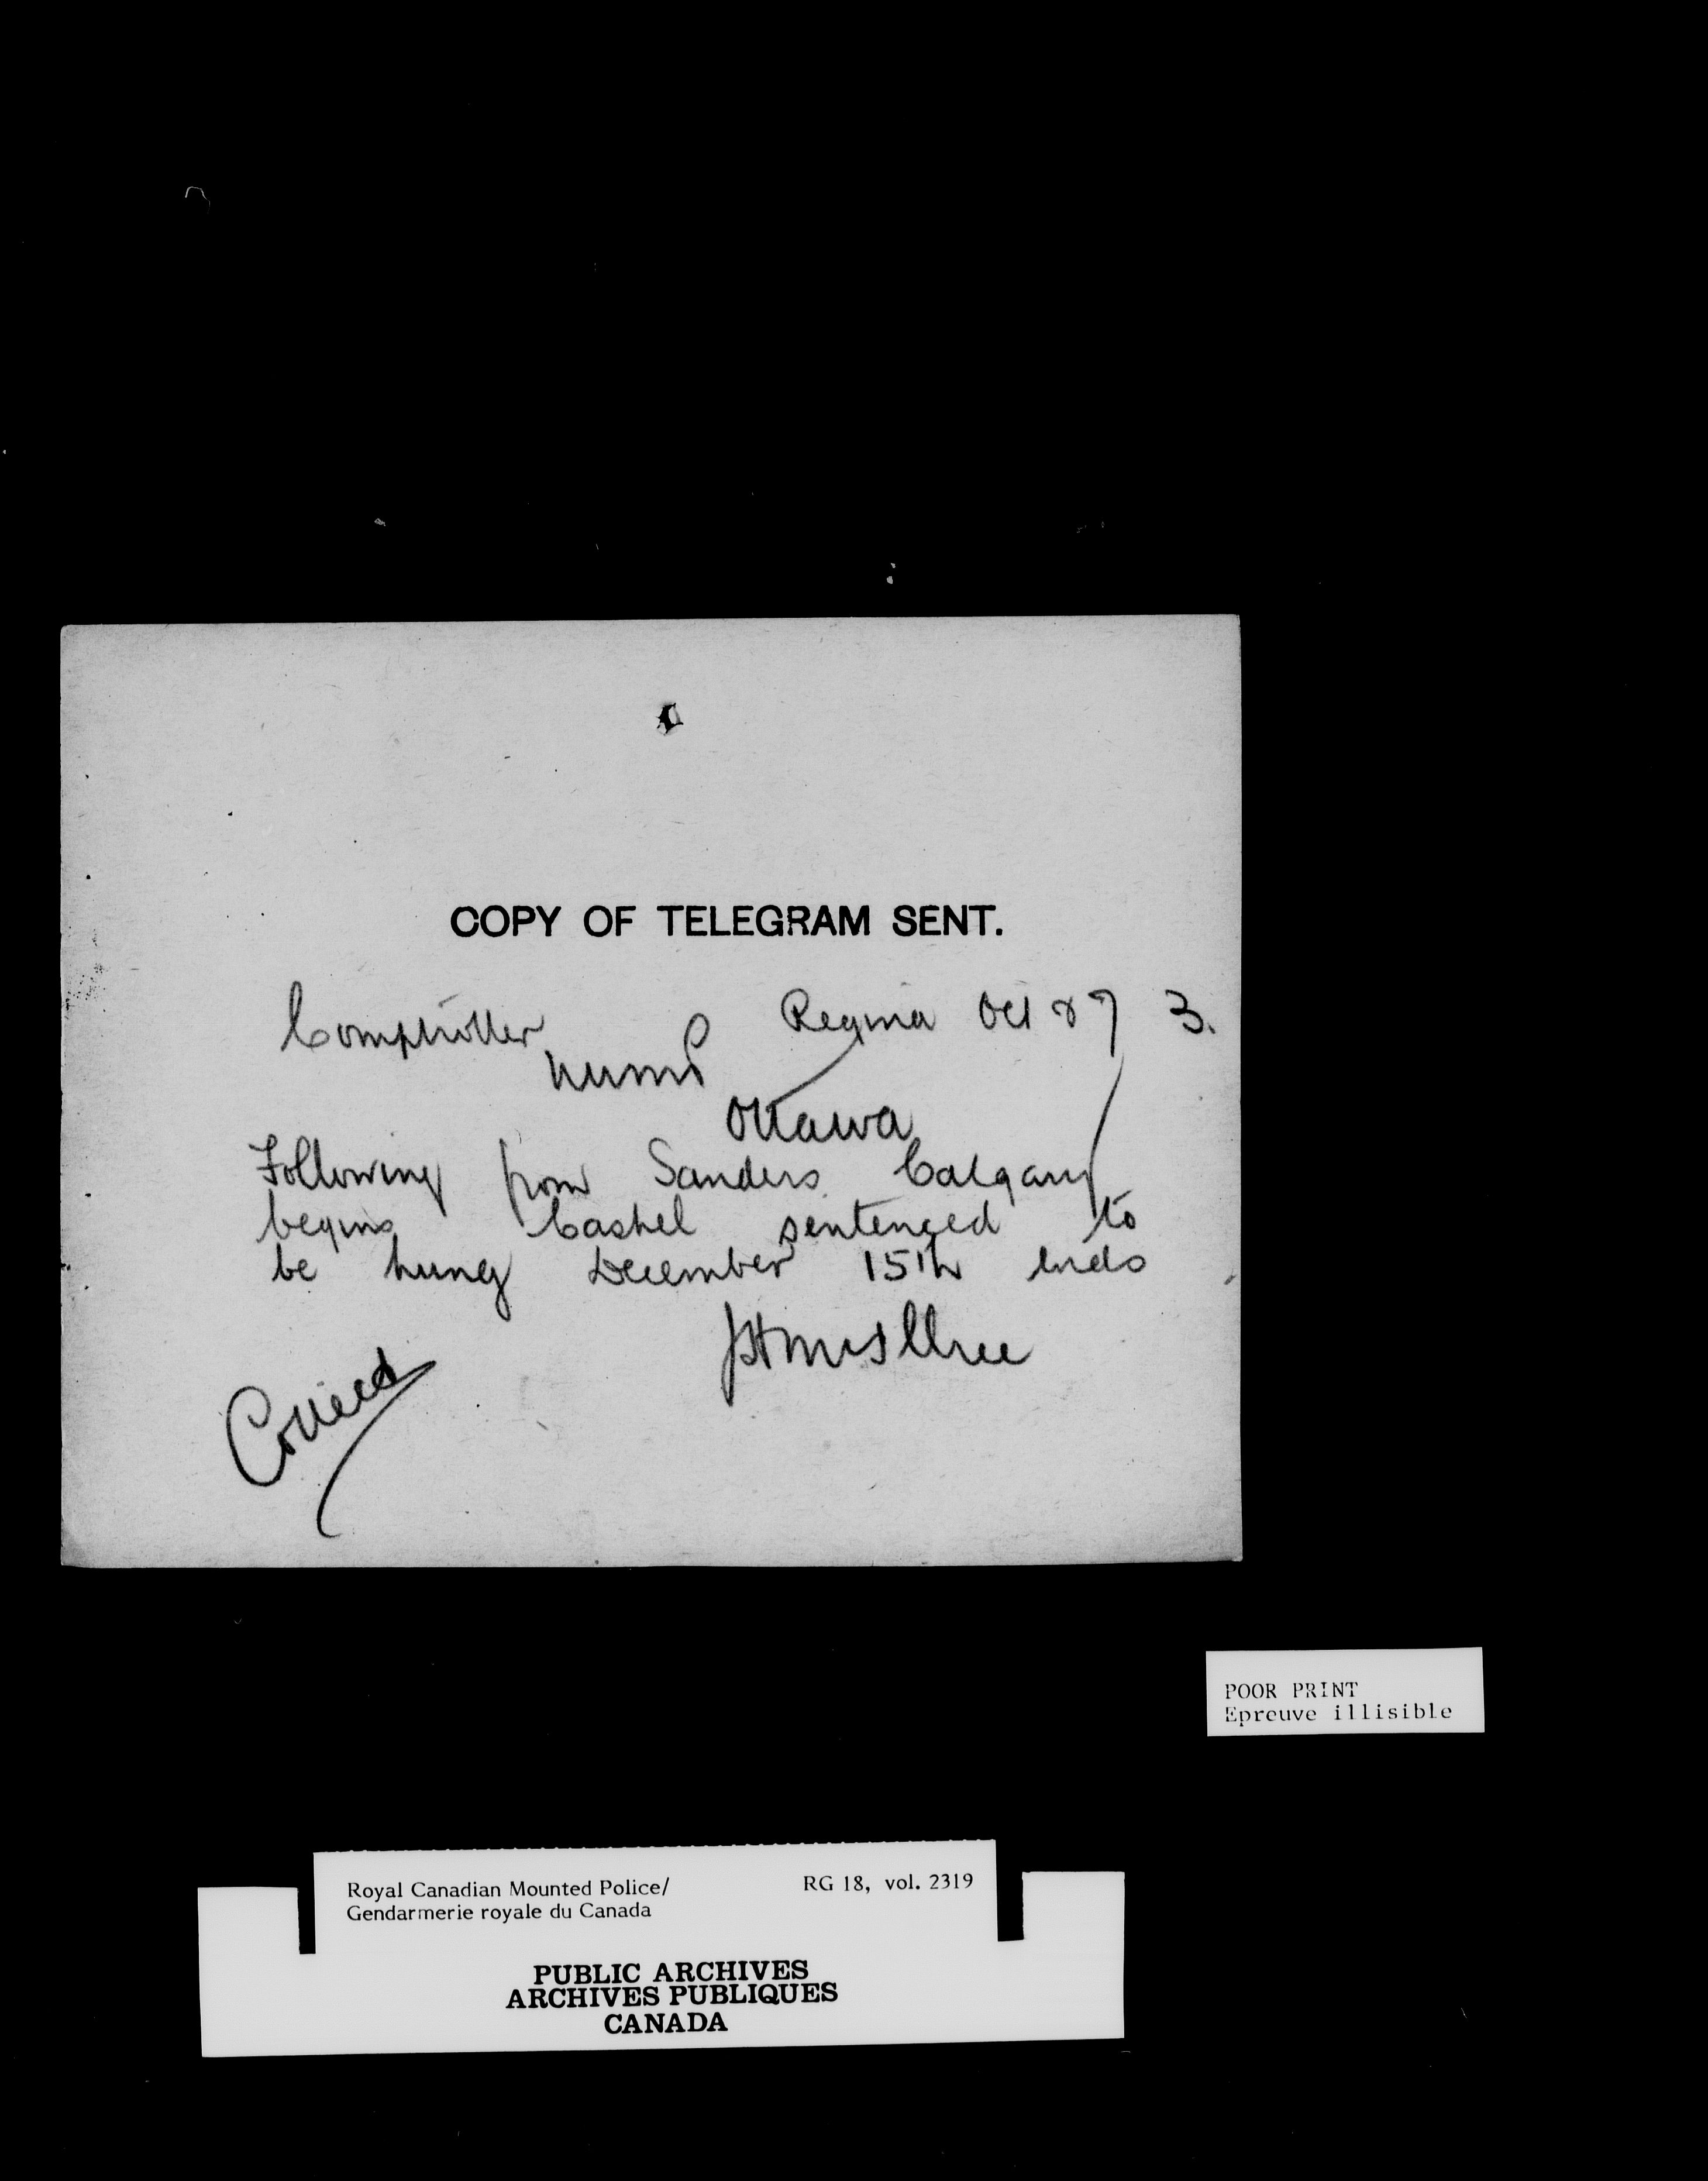 COPY OF TELEGRAM SENT.
Regina Oct 27 3.
Comptroller
NWMP
Ottawa
Following from Sanders Calgary
begins Cashel sentenced to
be hung December 15th ends
JHMcIllree
Correct
POOR PRINT
Epreuve illisible
Royal Canadian Mounted Police/ RG 18, vol. 2319
Gendarmerie royale du Canada
PUBLIC ARCHIVES
ARCHIVES PUBLIQUES
CANADA